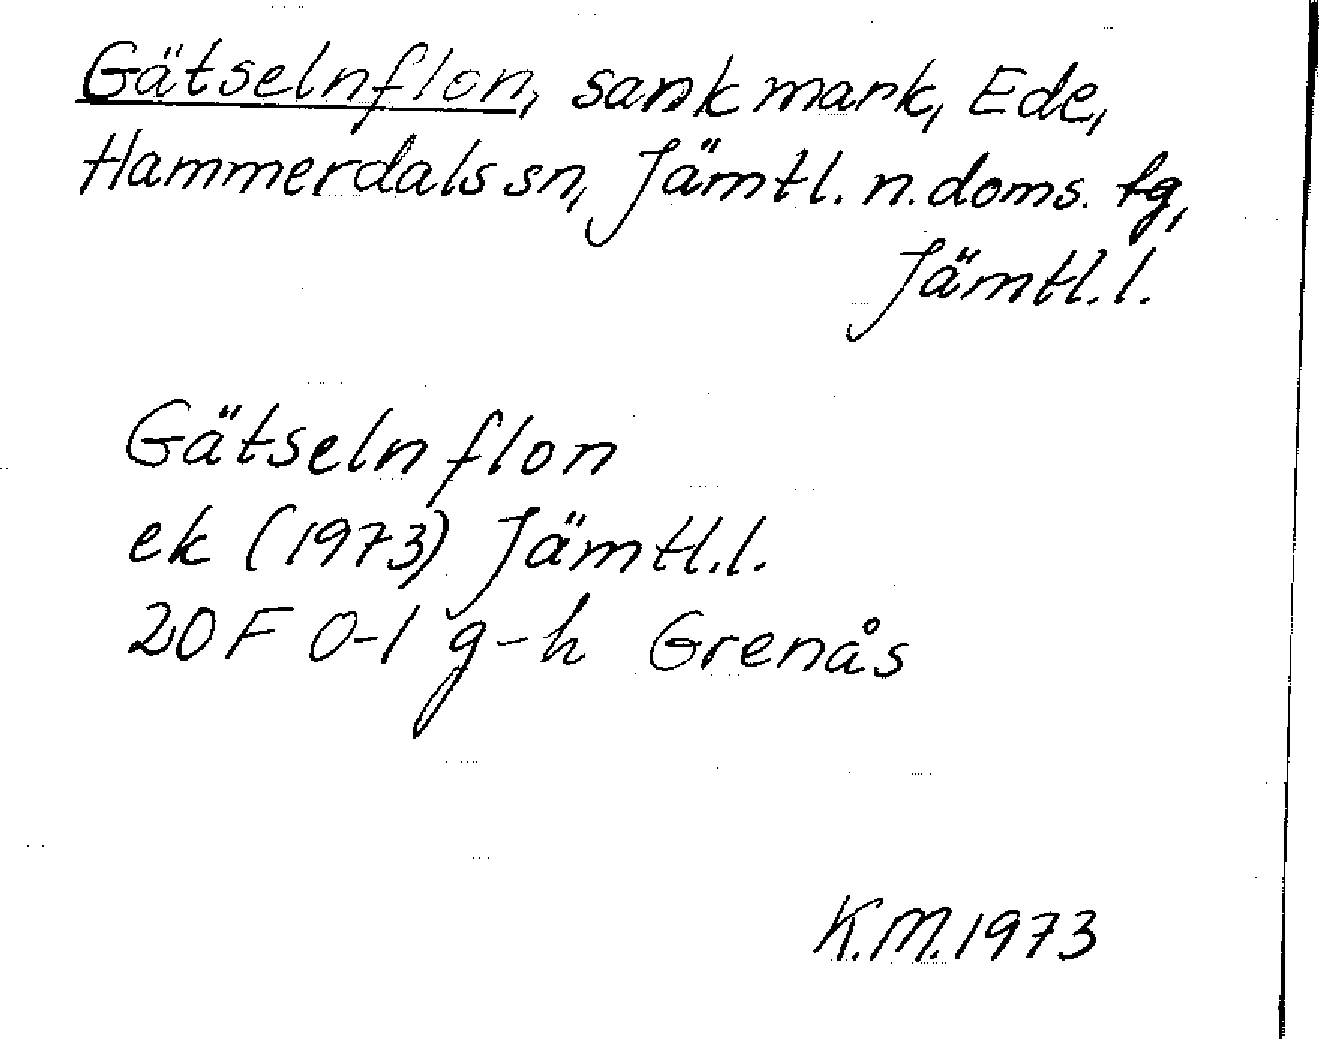 Gätselnflon, sank mark, Ede,
Hammerdals sn, Jämtl. n. doms. tg,
Jämtl. l.
Gätselnflon
ek (1973) Jämtl. l.
20 F 0-1 g-h Grenås
K.M. 1973